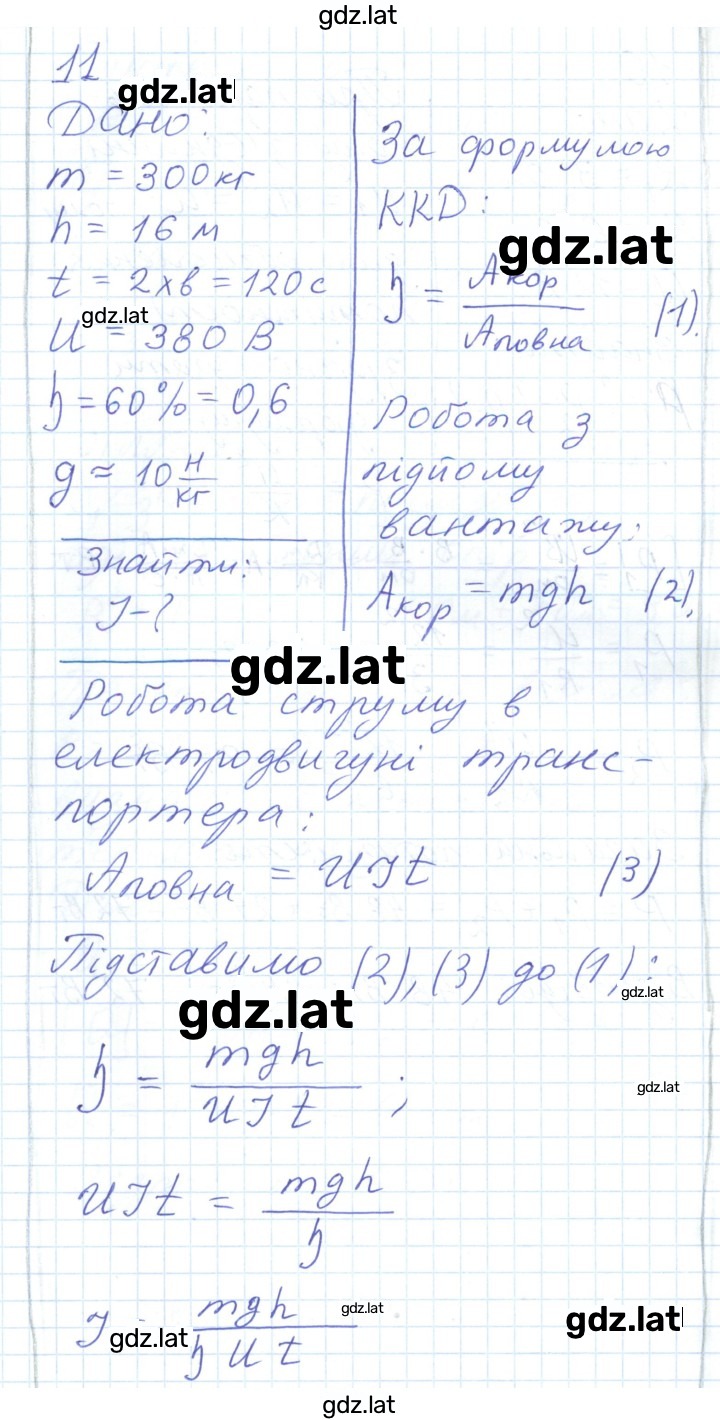 gdz.lat
11
gdz.lat
Дано:
m = 300 кг
h = 16 м
t = 2 хв = 120 с
gdz.lat
U = 380 В
η = 60% = 0,6
g ≈ 10 Н/кг
Знайти:
I - ?
За формулою
ККД:
gdz.lat
η = Aкор / Aповна (1).
Робота з
підйому
вантажу:
Aкор = mgh (2).
gdz.lat
Робота струму в
електродвигуні транс-
портера:
Aповна = UIt (3)
Підставимо (2), (3) до (1):
gdz.lat
gdz.lat
η = mgh / UIt ;
gdz.lat
UIt = mgh / η
gdz.lat
I = mgh / ηUt
gdz.lat
gdz.lat
gdz.lat